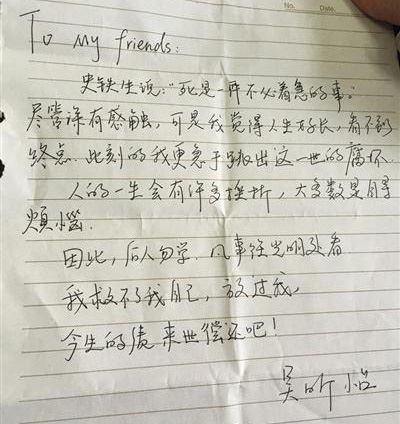 No. Date
To My friends:
史铁生说:"死是一件不必着急的事。"
尽管深有感触，可是我觉得人生好长，看不到
终点。此刻的我更急于跳出这一世的腐坏.
人的一生会有许多挫折，大多数是自寻
烦恼.
因此，后人勿学. 凡事往光明处看
我救不了我自己，放过我，
今生的债来世偿还吧！
吴昕怡